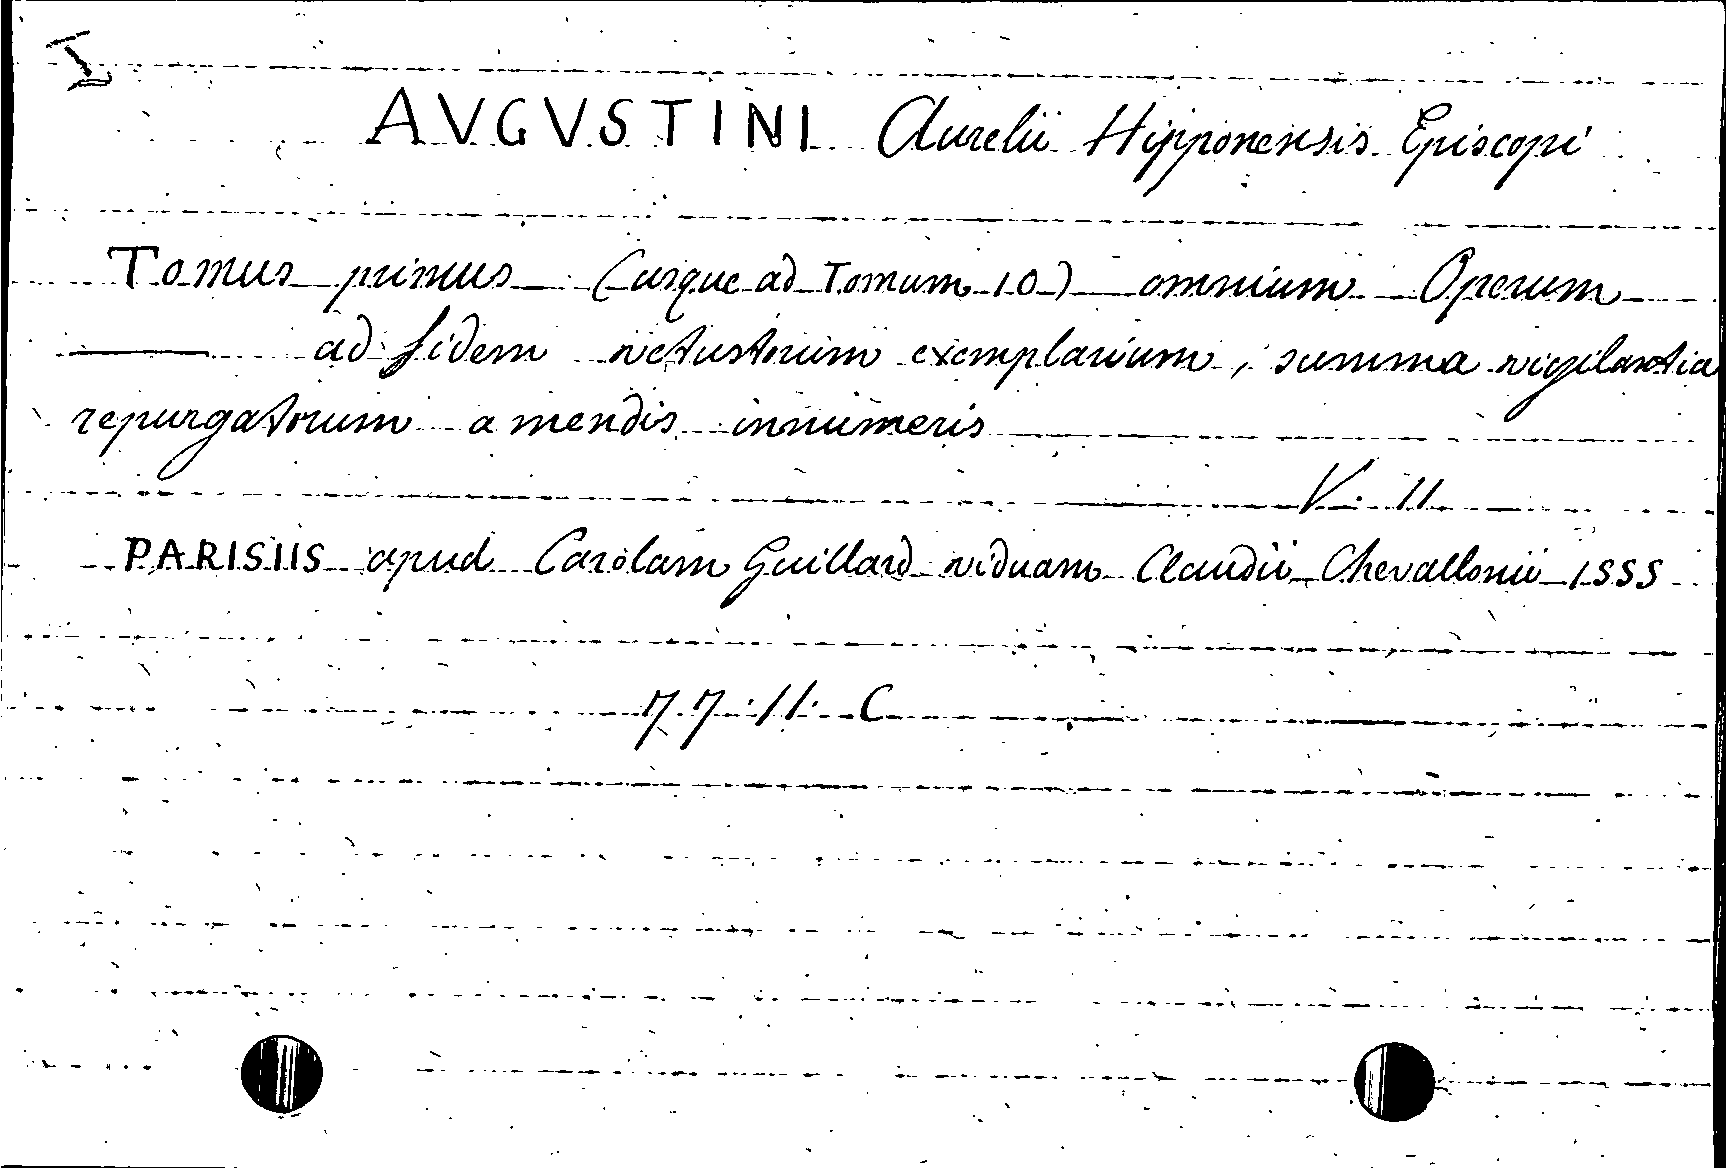 I
AVGVSTINI Aurelii Hipponensis Episcopi
Tomus primus (usque ad Tomum 10) omnium Operum
——— ad fidem vetustorum exemplarium, summa vigilantia
repurgatorum a mendis innumeris
V. 11
PARISIIS apud Carolam Guillard viduam Claudii Chevallonii 1555
77. 11. C